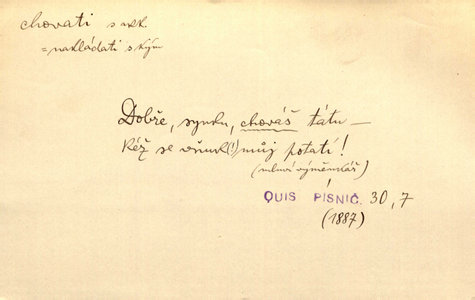 chovati s akk.
= nakládati s kým
Dobře, synku, chováš tátu –
Kéž se vňuk(!) můj potatí!
(mluví výměnkář)
QUIS PÍSNIČ. 30, 7
(1887)